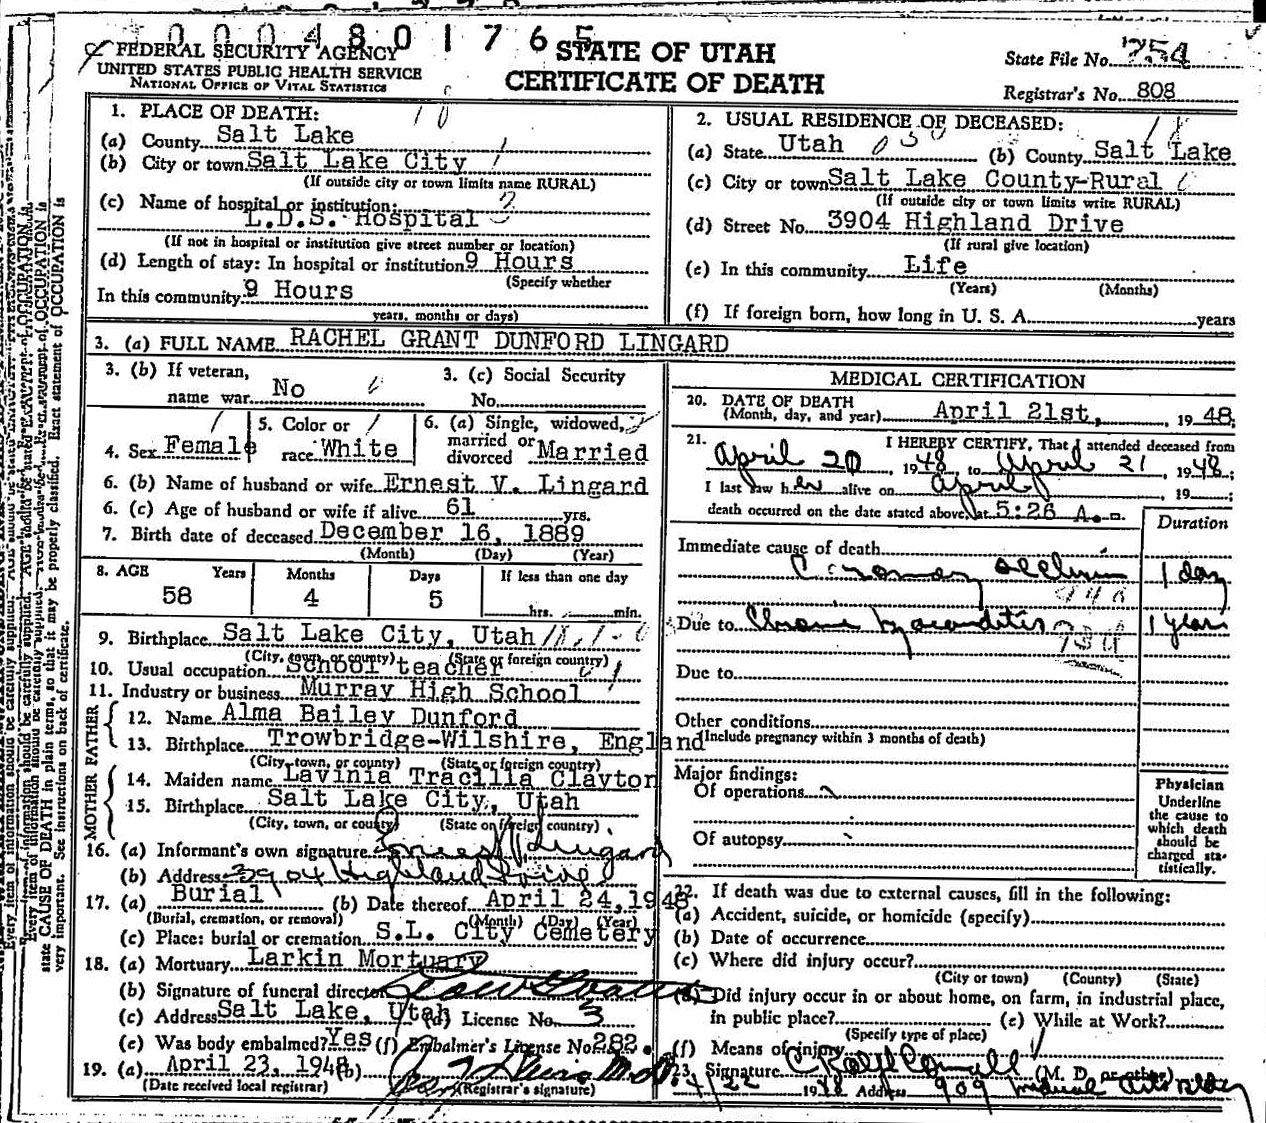 0004801765
FEDERAL SECURITY AGENCY
UNITED STATES PUBLIC HEALTH SERVICE
NATIONAL OFFICE OF VITAL STATISTICS
STATE OF UTAH
CERTIFICATE OF DEATH
State File No. 754
Registrar's No. 808
1. PLACE OF DEATH:
(a) County Salt Lake
(b) City or town Salt Lake City
(If outside city or town limits name RURAL)
(c) Name of hospital or institution:
L.D.S. Hospital
(If not in hospital or institution give street number or location)
(d) Length of stay: In hospital or institution 9 Hours
(Specify whether
In this community 9 Hours
years, months or days)
2. USUAL RESIDENCE OF DECEASED:
(a) State Utah (b) County Salt Lake
(c) City or town Salt Lake County-Rural
(If outside city or town limits write RURAL)
(d) Street No. 3904 Highland Drive
(If rural give location)
(e) In this community Life
(Years) (Months)
(f) If foreign born, how long in U. S. A. years
3. (a) FULL NAME RACHEL GRANT DUNFORD LINGARD
3. (b) If veteran,
name war No
3. (c) Social Security
No.
4. Sex Female
5. Color or
race White
6. (a) Single, widowed,
married or
divorced Married
6. (b) Name of husband or wife Ernest V. Lingard
6. (c) Age of husband or wife if alive 61 yrs.
7. Birth date of deceased December 16, 1889
(Month) (Day) (Year)
8. AGE Years Months Days If less than one day
58 4 5 hrs. min.
9. Birthplace Salt Lake City, Utah
(City, town, or county) (State or foreign country)
10. Usual occupation School teacher
11. Industry or business Murray High School
FATHER
12. Name Alma Bailey Dunford
13. Birthplace Trowbridge-Wilshire, England
(City, town, or county) (State or foreign country)
MOTHER
14. Maiden name Lavinia Tracilla Clayton
15. Birthplace Salt Lake City, Utah
(City, town, or county) (State or foreign country)
16. (a) Informant's own signature Ernest V Lingard
(b) Address 3904 Highland Drive
17. (a) Burial (b) Date thereof April 24, 1948
(Burial, cremation, or removal) (Month) (Day) (Year)
(c) Place: burial or cremation S.L. City Cemetery
18. (a) Mortuary Larkin Mortuary
(b) Signature of funeral director
(c) Address Salt Lake, Utah (d) License No. 3
(e) Was body embalmed? Yes (f) Embalmer's License No. 282.
19. (a) April 23, 1948 (b)
(Date received local registrar) (Registrar's signature)
MEDICAL CERTIFICATION
20. DATE OF DEATH
(Month, day, and year) April 21st, 1948
21. I HEREBY CERTIFY, That I attended deceased from
April 20, 1948, to April 21 1948;
I last saw her alive on April, 19 ;
death occurred on the date stated above, at 5:26 A.m.
Duration
Immediate cause of death
Coronary occlusion 1 day
Due to Chronic myocarditis 1 year
Due to
Other conditions
(Include pregnancy within 3 months of death)
Major findings:
Of operations
Of autopsy
Physician
Underline
the cause to
which death
should be
charged sta-
tistically.
22. If death was due to external causes, fill in the following:
(a) Accident, suicide, or homicide (specify)
(b) Date of occurrence
(c) Where did injury occur?
(City or town) (County) (State)
(d) Did injury occur in or about home, on farm, in industrial place,
in public place? (e) While at Work?
(Specify type of place)
(f) Means of injury
23. Signature (M. D. or other)
4/22 1948 Address 909 Medical Arts Bldg